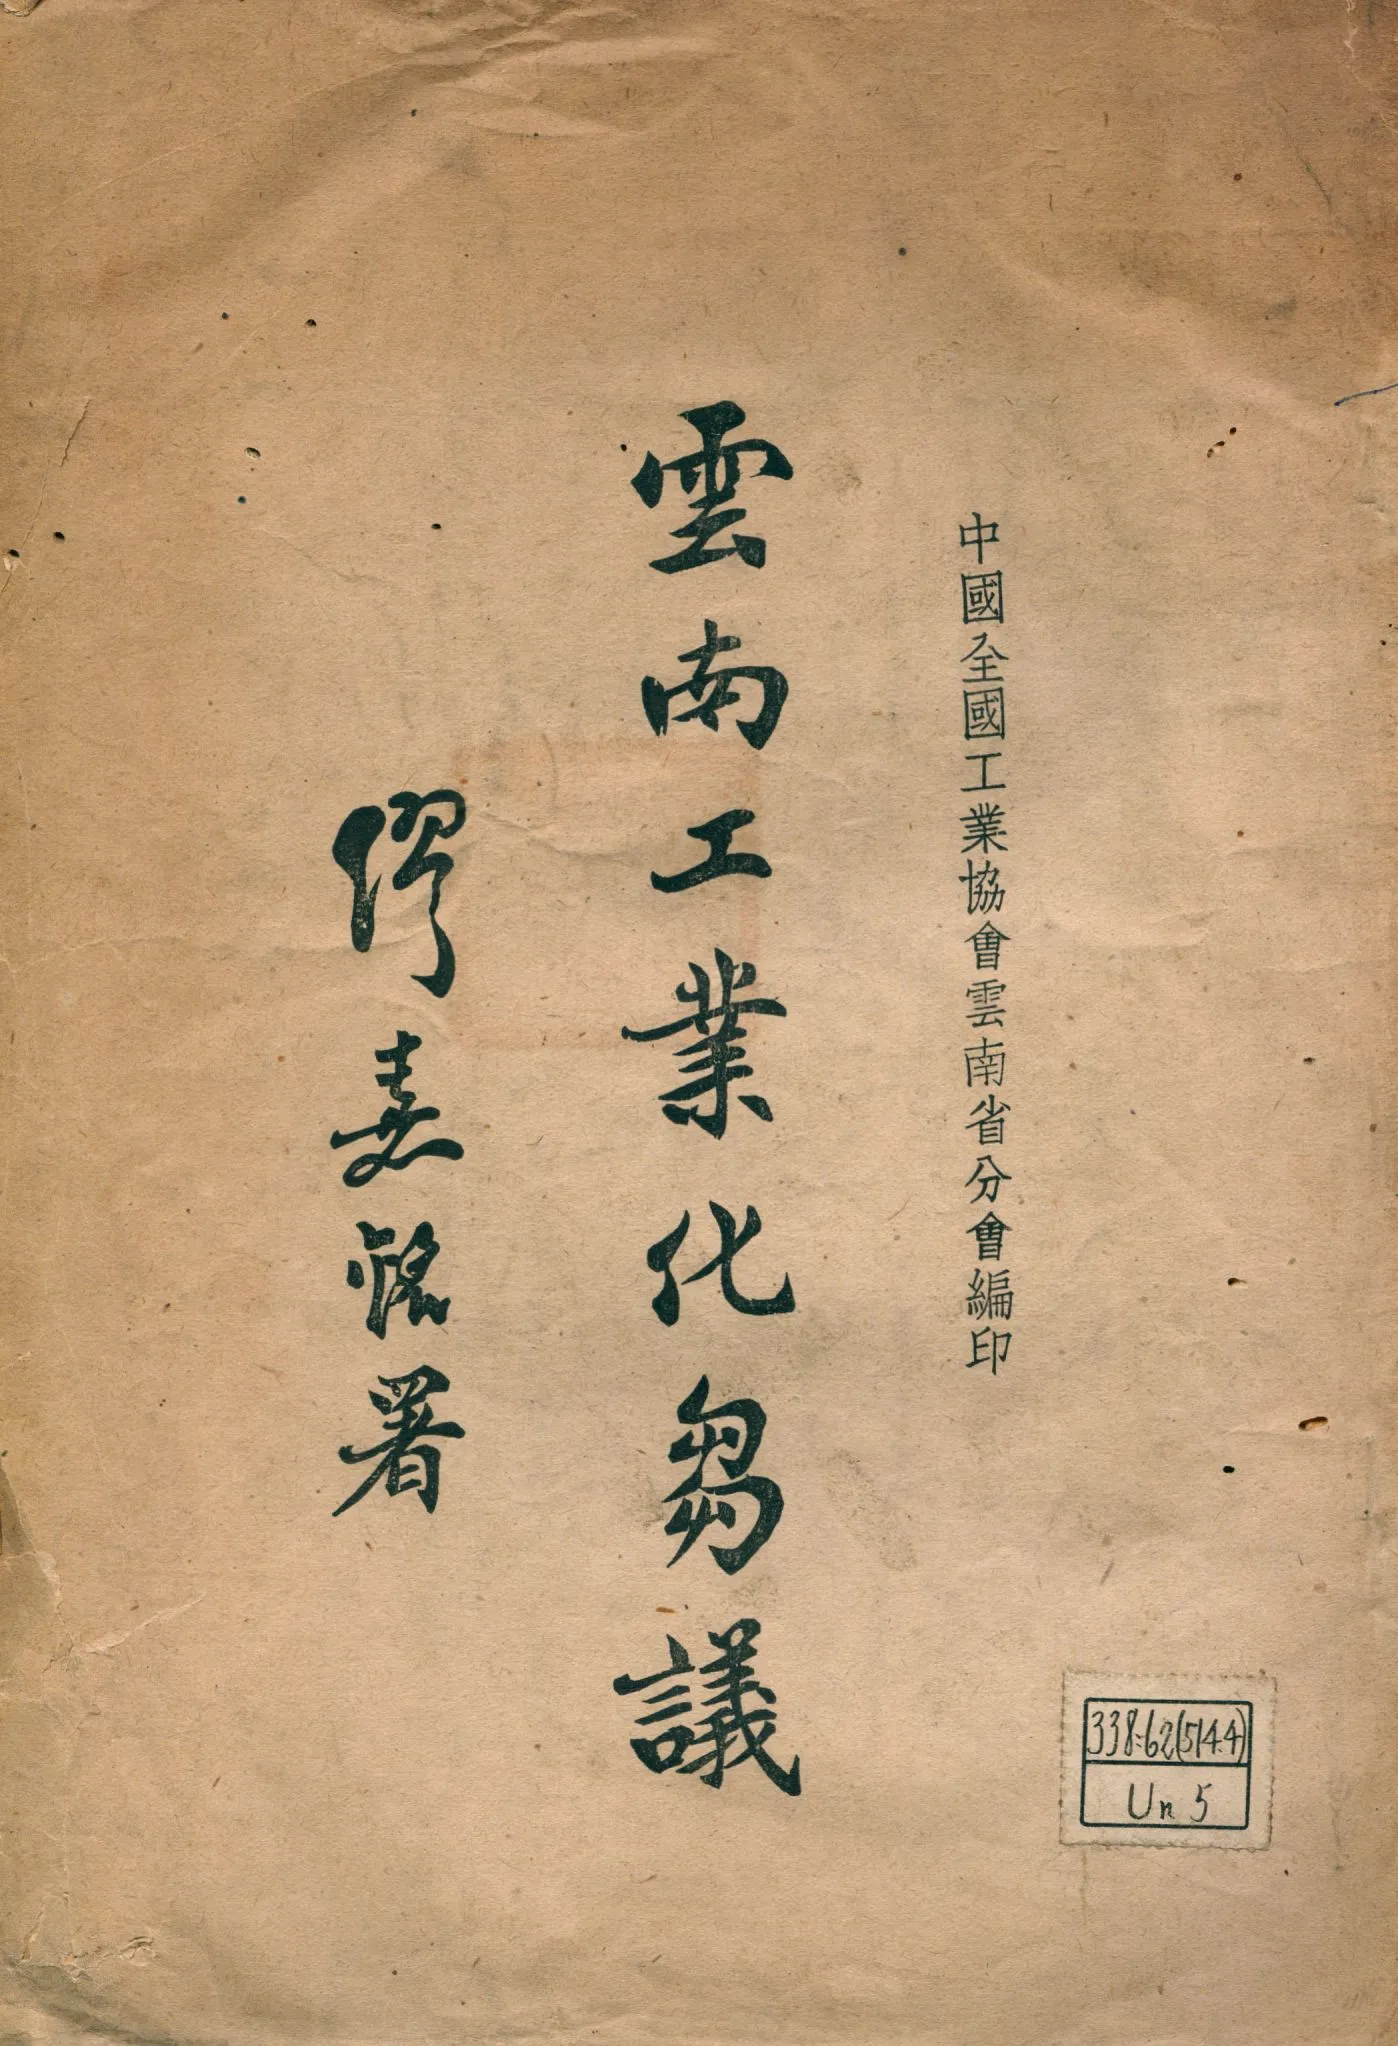 中國全國工業協會雲南省分會編印
雲南工業化芻議
繆嘉銘署
338:62(514.4)
Un 5